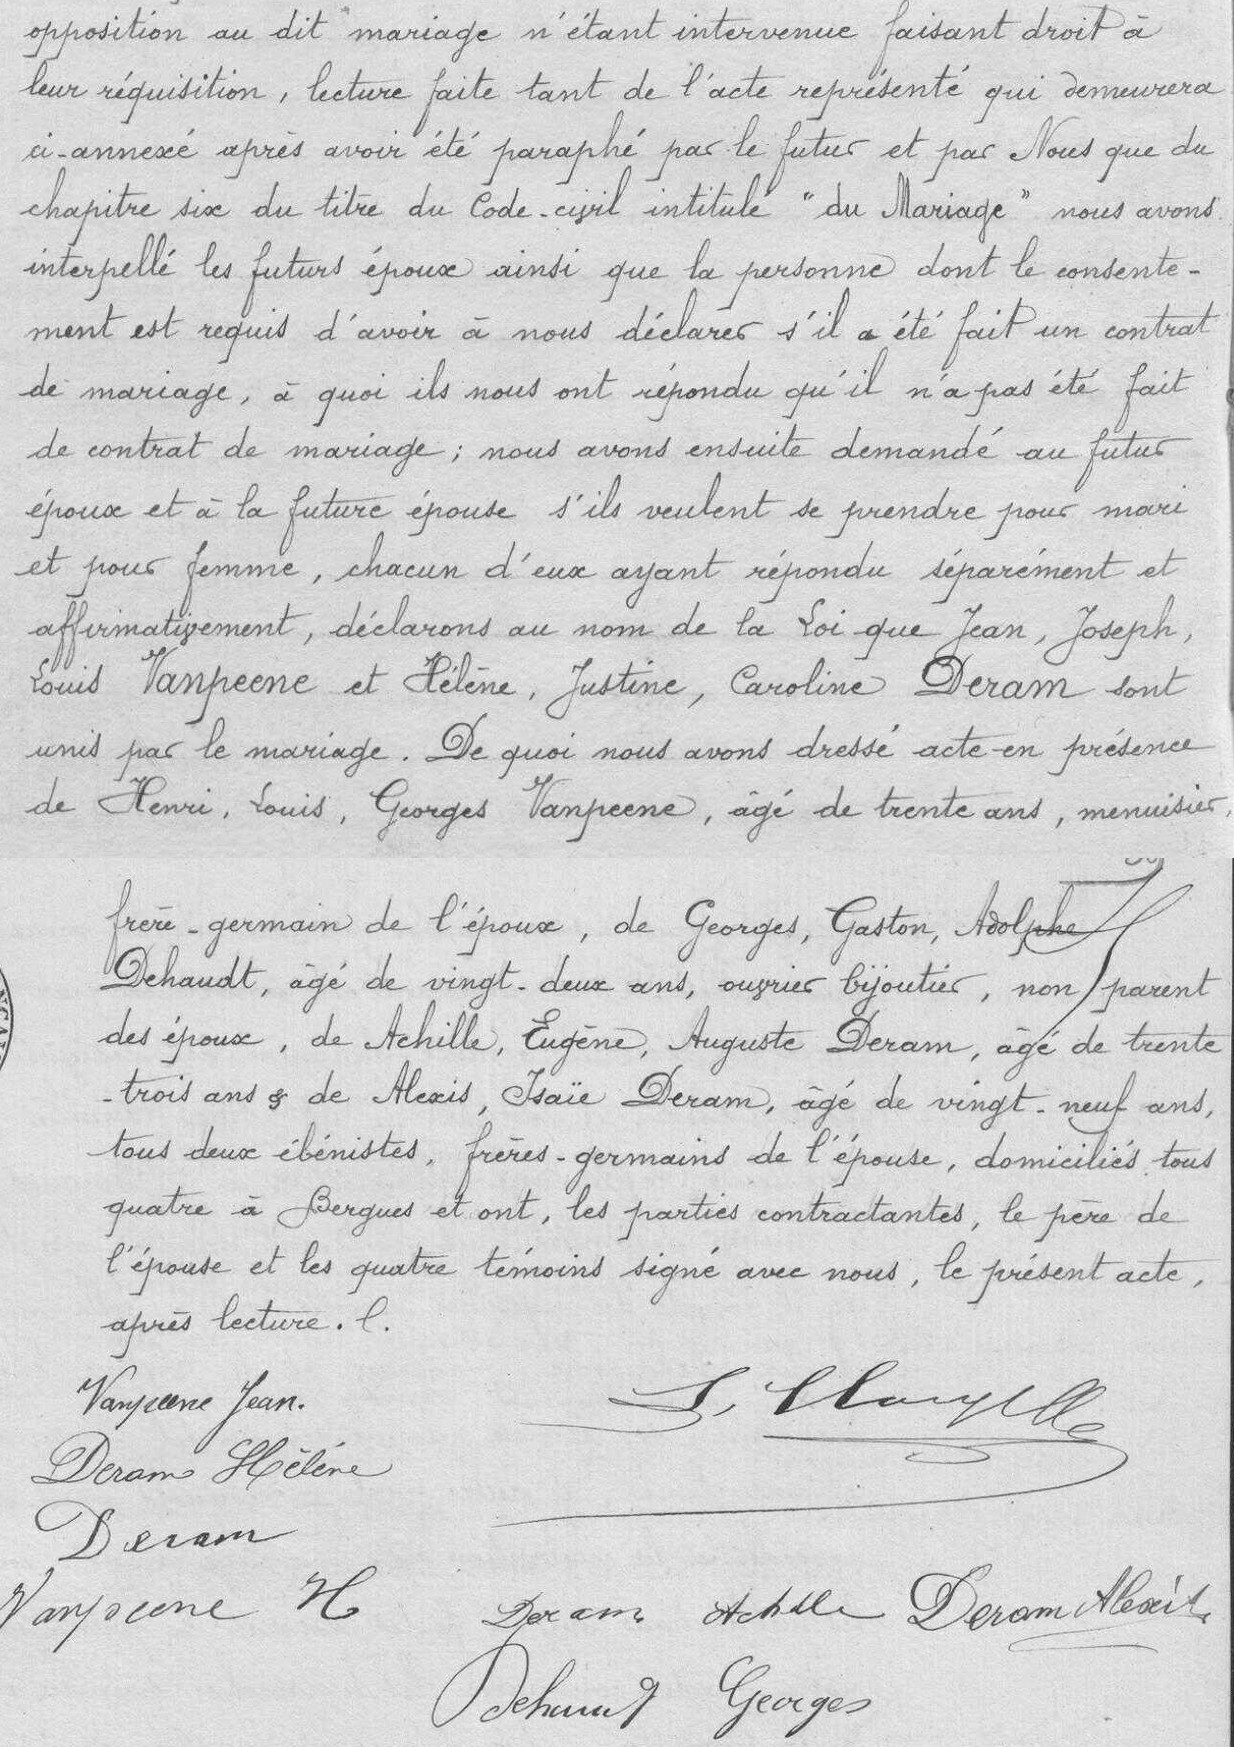 opposition au dit mariage n'étant intervenue faisant droit à
leur réquisition, lecture faite tant de l'acte représenté qui demeurera
ci-annexé après avoir été paraphé par le futur et par Nous que du
chapitre six du titre du Code-civil intitulé "du Mariage" nous avons
interpellé les futurs époux ainsi que la personne dont le consente-
ment est requis d'avoir à nous déclarer s'il a été fait un contrat
de mariage, à quoi ils nous ont répondu qu'il n'a pas été fait
de contrat de mariage; nous avons ensuite demandé au futur
époux et à la future épouse s'ils veulent se prendre pour mari
et pour femme, chacun d'eux ayant répondu séparément et
affirmativement, déclarons au nom de la Loi que Jean, Joseph,
Louis Vanpeene et Hélène, Justine, Caroline Deram sont
unis par le mariage. De quoi nous avons dressé acte en présence
de Henri, Louis, Georges Vanpeene, âgé de trente ans, menuisier,
frère-germain de l'époux, de Georges, Gaston, Adolphe
Dehaudt, âgé de vingt-deux ans, ouvrier bijoutier, non parent
des époux, de Achille, Eugène, Auguste Deram, âgé de trente
-trois ans & de Alexis, Isaïe Deram, âgé de vingt-neuf ans,
tous deux ébénistes, frères-germains de l'épouse, domiciliés tous
quatre à Bergues et ont, les parties contractantes, le père de
l'épouse et les quatre témoins signé avec nous, le présent acte,
après lecture. l.
Vanpeene Jean.
Deram Hélène
Deram
Vanpeene H
Deram Achille Deram Alexis
Dehaudt Georges